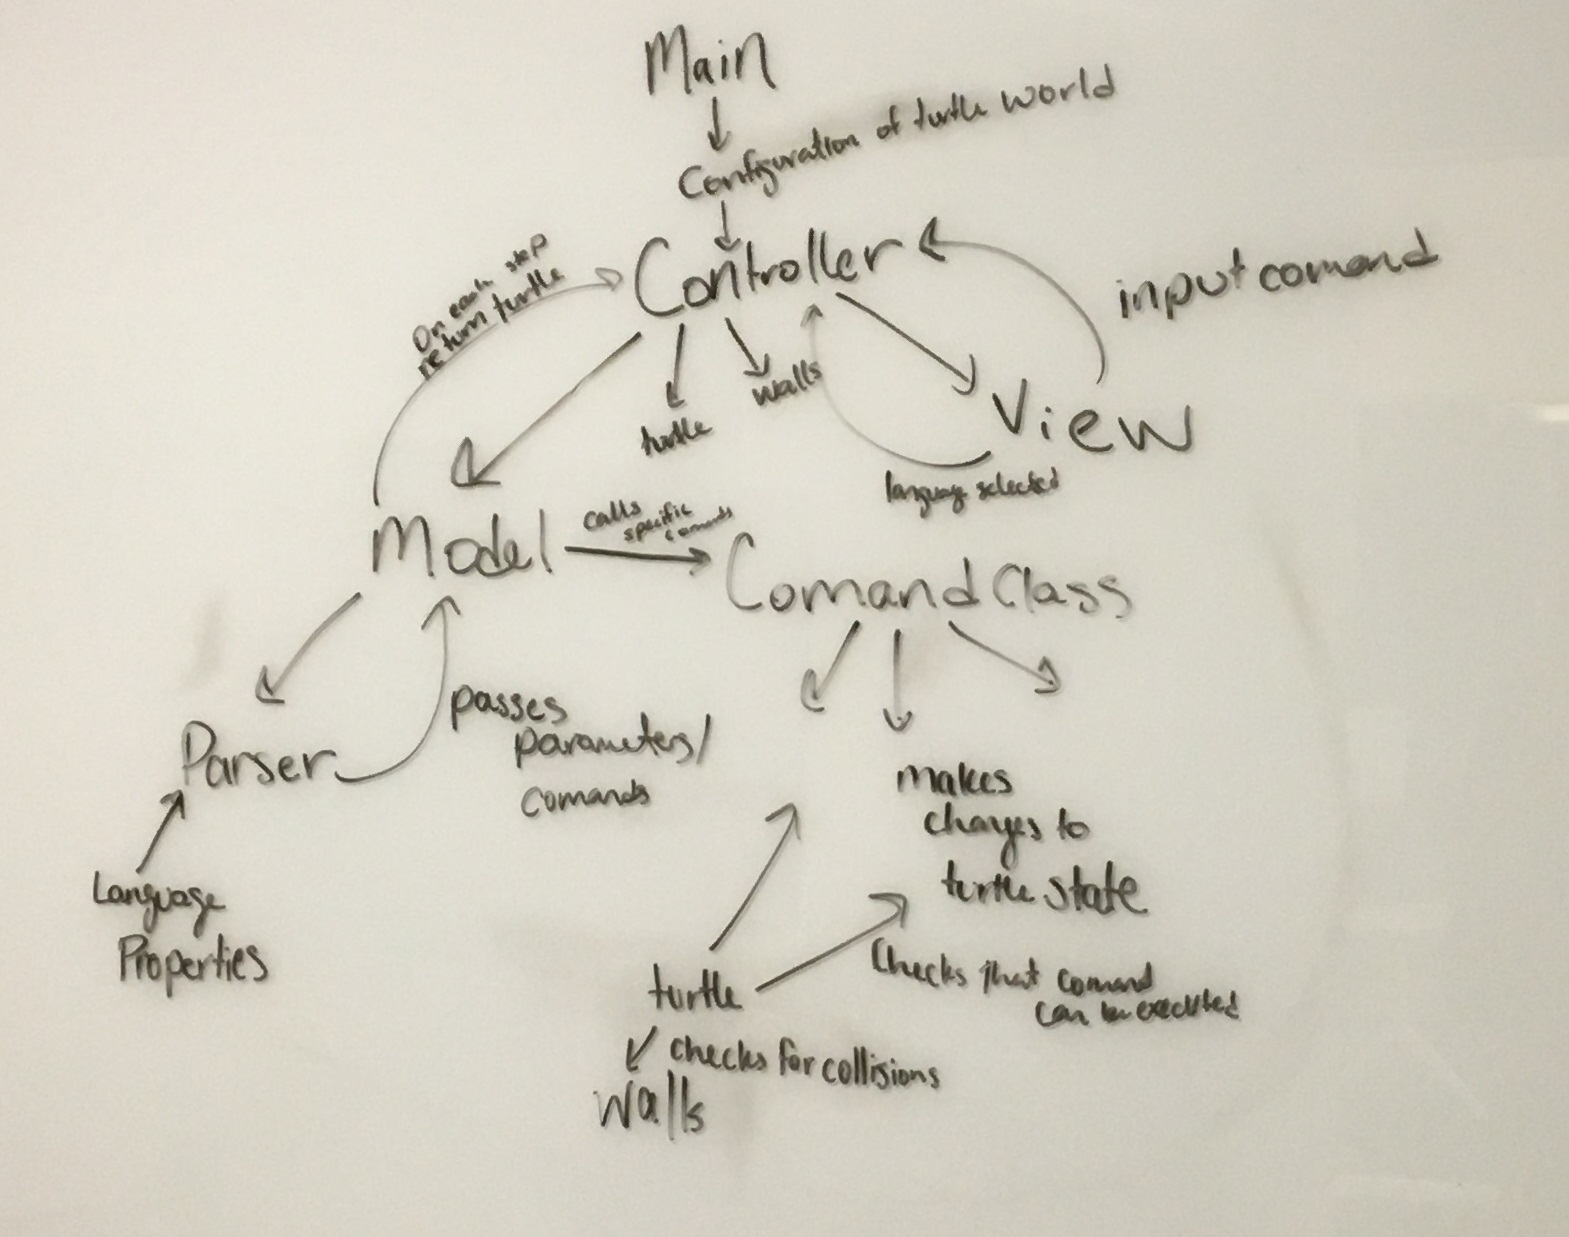 Main
Configuration of turtle world
Controller
On each step
return turtle
input comand
walls
turtle
View
language selected
Model
calls
specific
comands
Comand Class
Parser
passes
parameters/
comands
makes
changes to
turtle state
Language
Properties
turtle
Checks that comand
can be executed
checks for collisions
walls